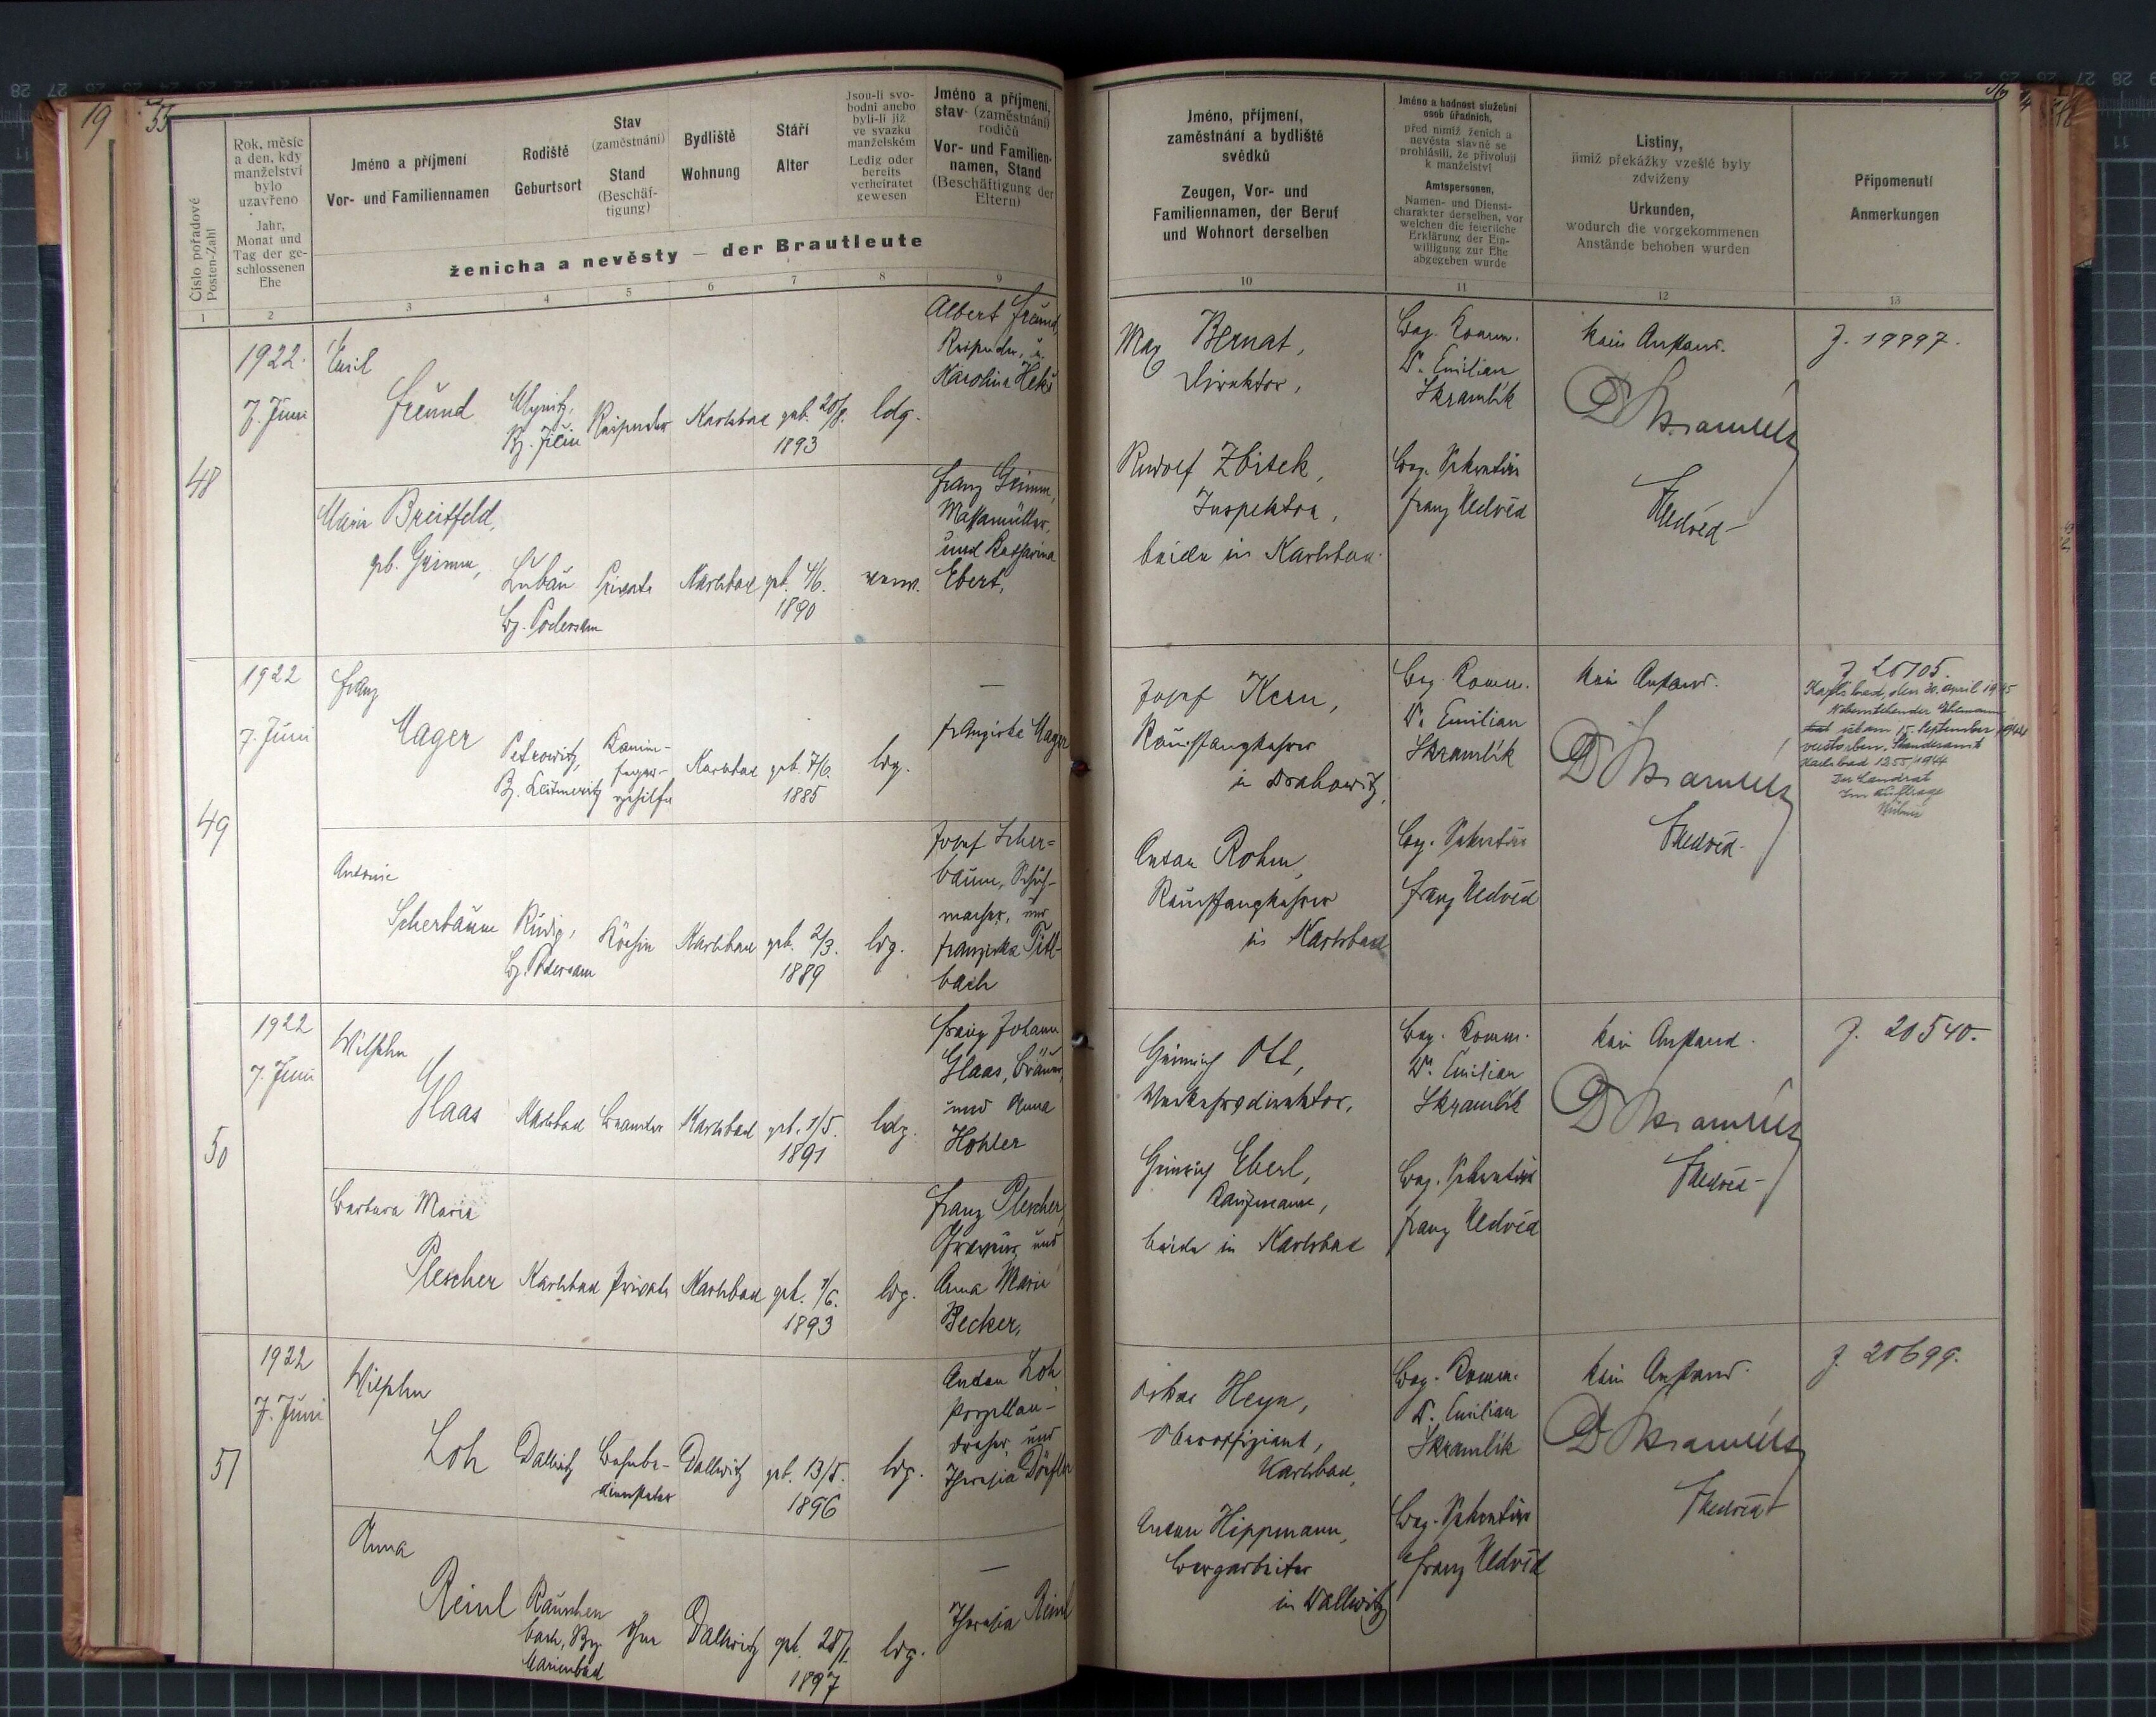 19
55
Číslo pořadové
Posten-Zahl
Rok, měsíc
a den, kdy
manželství
bylo
uzavřeno
Jahr,
Monat und
Tag der ge-
schlossenen
Ehe
Jméno a příjmení
Vor- und Familiennamen
Rodiště
Geburtsort
Stav
(zaměstnání)
Stand
(Beschäf-
tigung)
Bydliště
Wohnung
Stáří
Alter
Jsou-li svo-
bodni anebo
byli-li již
ve svazku
manželském
Ledig oder
bereits
verheiratet
gewesen
Jméno a příjmení,
stav (zaměstnání)
rodičů
Vor- und Familien-
namen, Stand
(Beschäftigung der
Eltern)
ženicha a nevěsty — der Brautleute
1
2
3
4
5
6
7
8
9
48
1922.
7. Juni
Emil
Freund
Bz. Jičin
Reisender
Karlsbad
geb.
1893
ldg.
Albert Freund,
Reisender, u.
Karolina
Marie Breitfeld,
geb. Grimm,
Lubau
Bz. Podersam
Private
Karlsbad
geb. 4/6.
1890
verw.
Franz Grimm,
und Katharina
Ebert.
49
1922
7. Juni
Franz
Mager
Petrowitz,
Bz. Leitmeritz
Kamin-
feger-
gehilfe
Karlsbad
geb. 7/6.
1885
ldg.
—
Franziska Mager
Antonie
Scherbaum
Rudig,
Bz. Podersam
Köchin
Karlsbad
geb. 2/3.
1889
ldg.
Josef Scher-
baum, Schuh-
macher, und
Franziska Titl-
bach
50
1922
7. Juni
Wilhelm
Haas
Karlsbad
Beamter
Karlsbad
geb. 1/5.
1891
ldg.
Franz Johann
Haas,
und Anna
Hohler
Barbara Maria
Plescher
Karlsbad
Private
Karlsbad
geb. 1/6.
1893
ldg.
Franz Plescher,
und
Anna Marie
Becker.
51
1922
7. Juni
Wilhelm
Loh
Dallwitz
Bahnbe-
diensteter
Dallwitz
geb. 13/5.
1896
ldg.
Anton Loh
Porzellan-
dreher und
Theresia Dörfler
Anna
Reinl
Rauschen
bach, Bz.
Marienbad
ohne
Dallwitz
geb.
1897
ldg.
—
Theresia Reinl
Jméno, příjmení,
zaměstnání a bydliště
svědků
Zeugen, Vor- und
Familiennamen, der Beruf
und Wohnort derselben
Jméno a hodnost služební
osob úředních,
před nimiž ženich a
nevěsta slavně se
prohlásili, že přivolují
k manželství
Amtspersonen,
Namen- und Dienst-
charakter derselben, vor
welchen die feierliche
Erklärung der Ein-
willigung zur Ehe
abgegeben wurde
Listiny,
jimiž překážky vzešlé byly
zdviženy
Urkunden,
wodurch die vorgekommenen
Anstände behoben wurden
Připomenutí
Anmerkungen
10
11
12
13
Max Bernat,
Direktor,
Rudolf Zbitek,
Inspektor,
beide in Karlsbad.
Bez. Komm.
Dr. Emilian
Skramlík
Bez. Sekretär
Franz Nedvěd
Kein Anstand.
Dr Skramlík
Nedvěd
Z. 19997.
Josef Kern,
Rauchfangkehrer
in Drahowitz,
Anton Rohm,
Rauchfangkehrer
in Karlsbad
Bez. Komm.
Dr. Emilian
Skramlík
Bez. Sekretär
Franz Nedvěd
Kein Anstand.
Dr Skramlík
Nedvěd
Z 20105.
Karlsbad, den 30. April 1945
Nebenstehender Ehemann
ist am 15. September 1944
verstorben. Standesamt
Karlsbad 1255/1944
Der Landrat
Im Auftrage
Heinrich Ott,
Verkehrsdirektor,
Heinrich Eberl,
Kaufmann,
beide in Karlsbad
Bez. Komm.
Dr. Emilian
Skramlík
Bez. Sekretär
Franz Nedvěd
Kein Anstand.
Dr Skramlík
Nedvěd
Z. 20540.
Oskar Heyn,
Oberoffiziant,
Karlsbad,
Anton Hippmann,
Bergarbeiter
in Dallwitz
Bez. Komm.
Dr. Emilian
Skramlík
Bez. Sekretär
Franz Nedvěd
Kein Anstand.
Dr Skramlík
Nedvěd
Z. 20699.